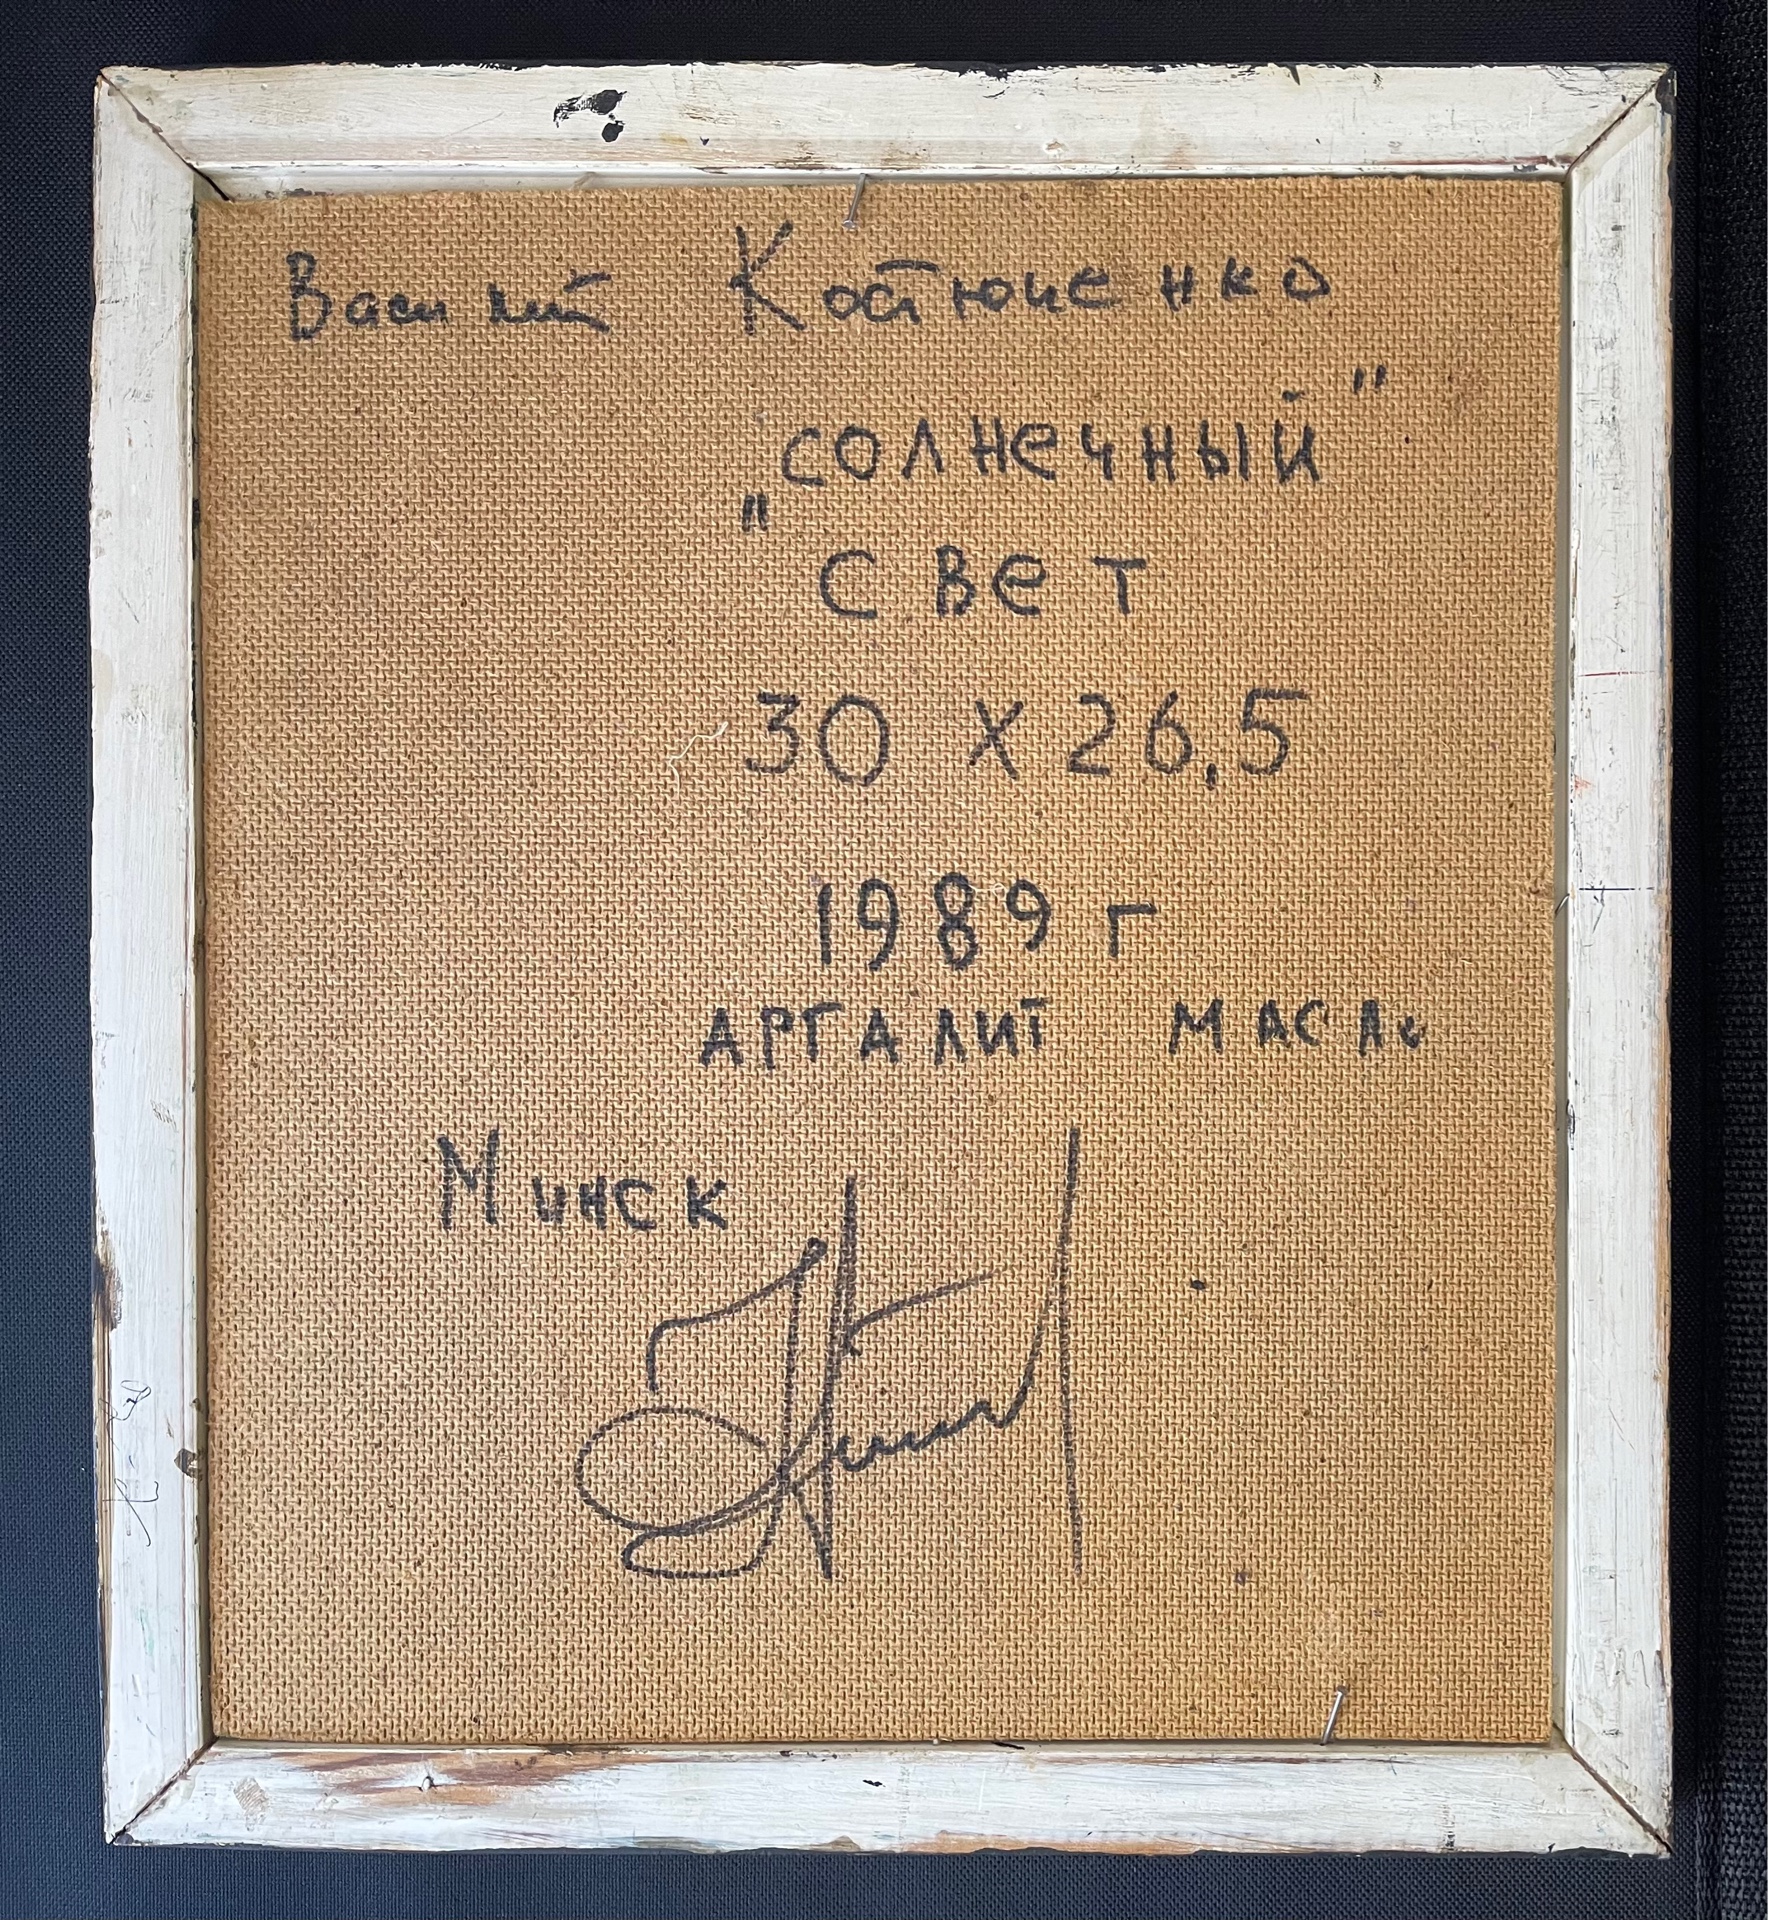 Василий Костюченко
„солнечный"
" свет
30 х 26,5
1989 г
АРГАЛИТ МАСЛО
Минск